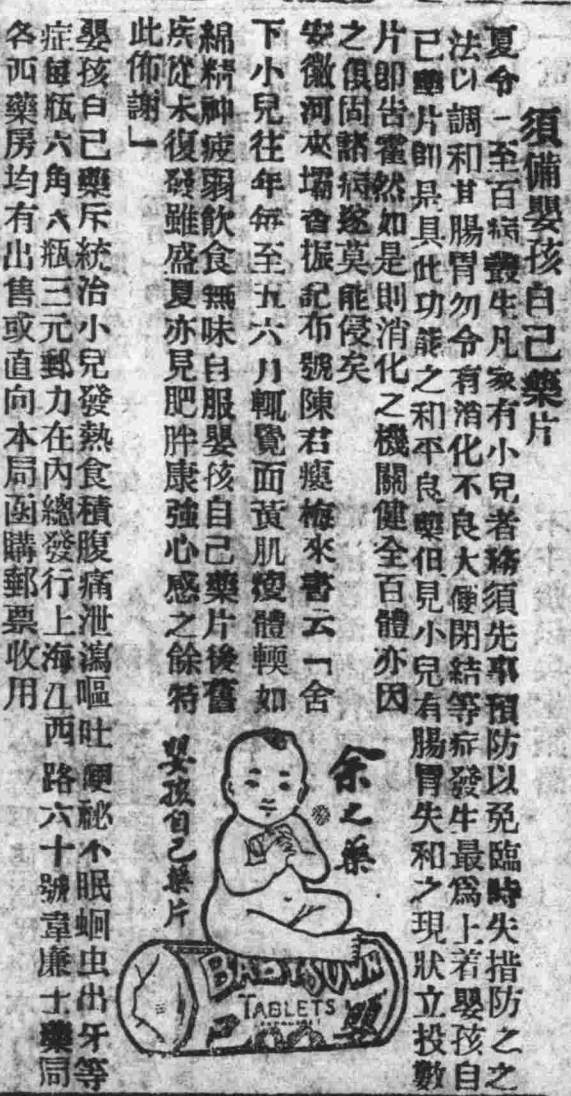 須備嬰孩自己藥片
夏令一至百病叢生凡家有小兒者務須先事預防以免臨時失措防之之
法以調和其腸胃勿令有消化不良大便閉結等症發生最爲上着嬰孩自
己藥片即是具此功能之和平良藥但見小兒有腸胃失和之現狀立投數
片即告霍然如是則消化之機關健全百體亦因
之俱固諸病遂莫能侵矣
安徽河夾壩香振記布號陳君癭梅來書云「舍
下小兒往年每至五六月輒覺面黃肌瘦體輭如
綿精神疲弱飲食無味自服嬰孩自己藥片後舊
疾從未復發雖盛夏亦見肥胖康強心感之餘特
此佈謝」
嬰孩自己藥片統治小兒發熱食積腹痛泄瀉嘔吐便祕不眠蛔虫出牙等
症每瓶六角六瓶三元郵力在內總發行上海江西路六十號韋廉士藥局
各西藥房均有出售或直向本局函購郵票收用
余之藥
嬰孩自己藥片
BABY'S OWN
TABLETS